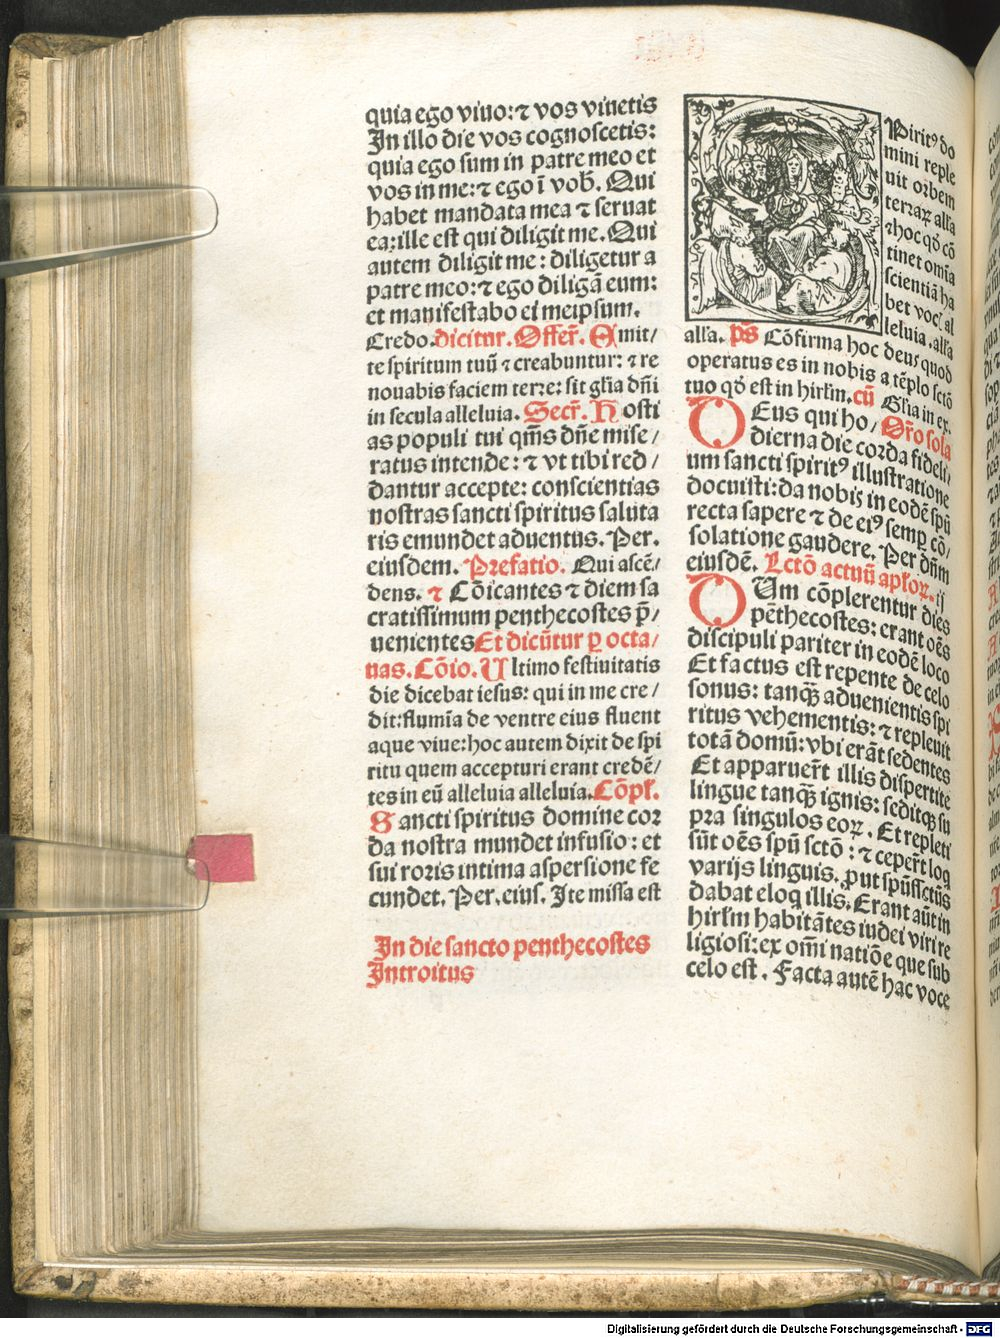 quia ego viuo: ⁊ vos viuetis
In illo die vos cognoscetis:
quia ego sum in patre meo et
vos in me: ⁊ ego ī vob̄. Qui
habet mandata mea ⁊ seruat
ea: ille est qui diligit me. Qui
autem diligit me: diligetur a
patre meo: ⁊ ego diligā eum:
et manifestabo ei meipsum.
Credo. dicitur. Offer̄. Emit/
te spiritum tuū ⁊ creabuntur: ⁊ re
nouabis faciem terre: sit gl̄ia dn̄i
in secula alleluia. Secr̄. Hosti
as populi tui qm̄s dn̄e mise/
ratus intende: ⁊ vt tibi red/
dantur accepte: conscientias
nostras sancti spiritus saluta
ris emundet aduentus. Per.
eiusdem. Prefatio. Qui ascē/
dens. ⁊ Cōicantes ⁊ diem sa
cratissimum penthecostes p̄/
uenientes Et dicūtur ꝑ octa/
uas. Cōio. Ultimo festiuitatis
die dicebat iesus: qui in me cre/
dit: flumīa de ventre eius fluent
aque viue: hoc autem dixit de spi
ritu quem accepturi erant credē/
tes in eū alleluia alleluia. Cōpl̄.
Sancti spiritus domine cor
da nostra mundet infusio: et
sui roris intima aspersione fe
cundet. Per. eius. Ite missa est
In die sancto penthecostes
Introitus
Spiritꝰ do
mini reple
uit orbem
terraꝝ all̄a
⁊ hoc qd̄ cō
tinet omīa
scientiā ha
bet voc̄ al
leluia. all̄a
all̄a. p̄s Cōfirma hoc deus quod
operatus es in nobis a tēplo sctō
tuo qd̄ est in hirl̄m. cū Gl̄ia in ex.
DEus qui ho/ Or̄o sola
dierna die corda fideli/
um sancti spiritꝰ illustratione
docuisti: da nobis in eodē spū
recta sapere ⁊ de eiꝰ semꝑ cō/
solatione gaudere. Per dn̄m
eiusdē. Lctō actuū apl̄oꝝ. ij
DUm cōplerentur dies
pēthecostes: erant oēs
discipuli pariter in eodē loco
Et factus est repente de celo
sonus: tanqꝫ̄ aduenientis spi
ritus vehementis: ⁊ repleuit
totā domū: vbi erāt sedentes
Et apparuer̄t illis dispertite
lingue tanqꝫ̄ ignis: seditqꝫ su
pra singulos eoꝝ. Et repleti
sūt oēs spū sctō: ⁊ ceper̄t loq
varijs linguis. ꝓut spūssctūs
dabat eloq illis. Erant aūt in
hirl̄m habitātes iudei viri re
ligiosi: ex om̄i natiōe que sub
celo est. Facta autē hac voce
Digitalisierung gefördert durch die Deutsche Forschungsgemeinschaft - DFG